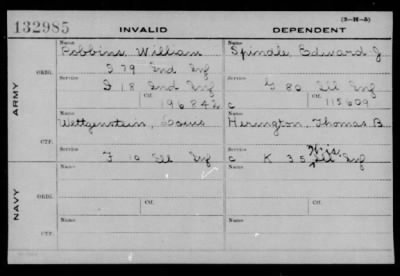 132985 INVALID DEPENDENT (3-H-5)
Name Name
Robbins, William Spindle, Edward J
ORIG.
D 79 Ind Inf
Service Service
G 18 Ind Inf G 80 Ill Inf
Ctf. Ctf.
196842 C 115609
ARMY
Name Name
Wettgenstein, Herington, Thomas B
CTF.
F 10 Ill Inf C K 35 Wis Inf
Name Name
ORIG.
Service Service
Ctf. Ctf.
NAVY
Name Name
CTF.
Service Service